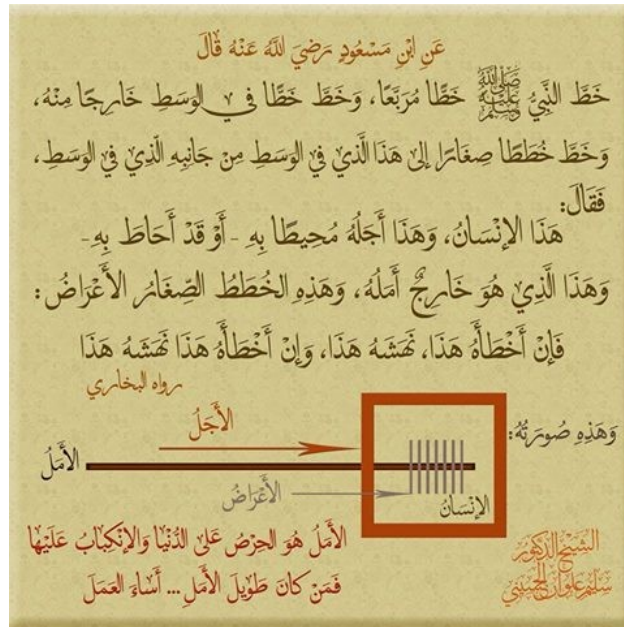 عَنِ ابْنِ مَسْعُودٍ رَضِيَ اللَّهُ عَنْهُ قَالَ
خَطَّ النَّبِيُّ ﷺ خَطًّا مُرَبَّعًا، وَخَطَّ خَطًّا فِي الوَسَطِ خَارِجًا مِنْهُ،
وَخَطَّ خُطَطًا صِغَارًا إِلَى هَذَا الَّذِي فِي الوَسَطِ مِنْ جَانِبِهِ الَّذِي فِي الوَسَطِ،
فَقَالَ:
هَذَا الإِنْسَانُ، وَهَذَا أَجَلُهُ مُحِيطًا بِهِ - أَوْ قَدْ أَحَاطَ بِهِ -
وَهَذَا الَّذِي هُوَ خَارِجٌ أَمَلُهُ، وَهَذِهِ الخُطَطُ الصِّغَارُ الأَعْرَاضُ:
فَإِنْ أَخْطَأَهُ هَذَا، نَهَشَهُ هَذَا، وَإِنْ أَخْطَأَهُ هَذَا نَهَشَهُ هَذَا
رواه البخاري
وَهَذِهِ صُورَتُهُ:
الأَجَلُ
الأَمَلُ
الأَعْرَاضُ
الإِنْسَانُ
الأَمَلُ هُوَ الحِرْصُ عَلَى الدُّنْيَا وَالإِنْكِبَابُ عَلَيْهَا
فَمَنْ كَانَ طَوِيلَ الأَمَلِ... أَسَاءَ العَمَلَ
الشيخ الدكتور
سليم علوان الحسيني